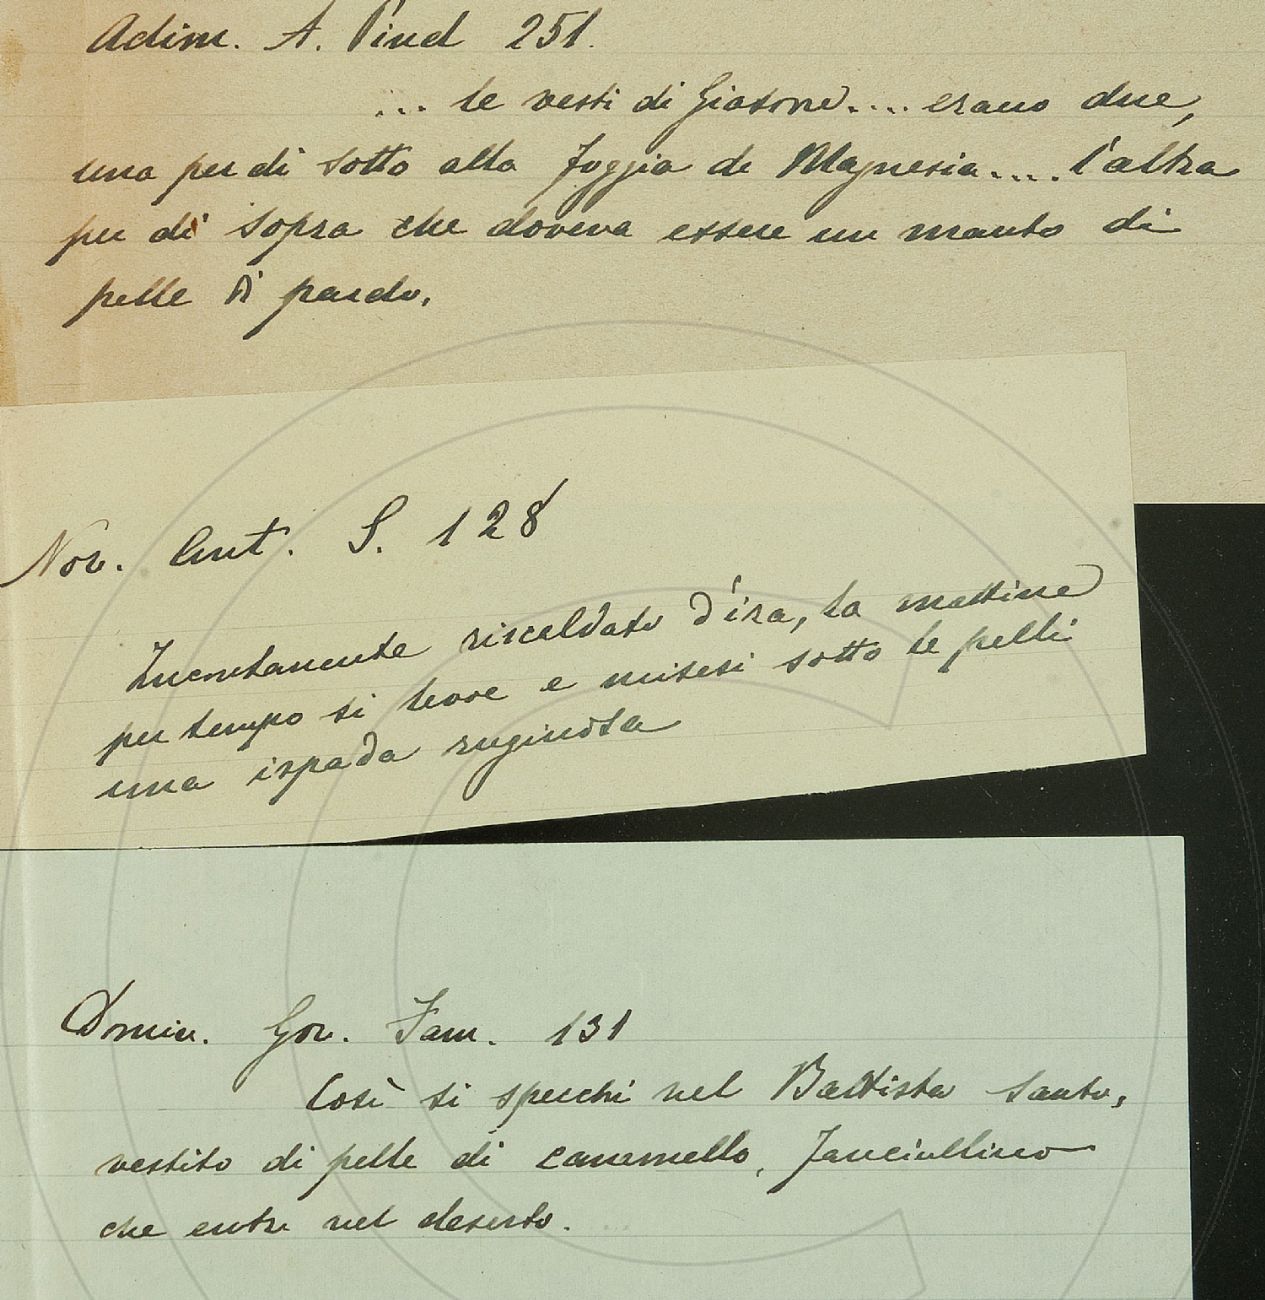 Adim. A. Pind 251.
... le vesti di Giasone.... erano due,
una per di sotto alla foggia de Magnesia.... l'altra
per di sopra che doveva essere un manto di
pelle di pardo.
Nov. Ant. S. 128
Incontanente riscaldato d'ira, la mattina
per tempo si leva e misesi sotto le pelli
una ispada ruginosa
Domin. Gov. Fam. 131
Così si specchi nel Battista santo,
vestito di pelle di cammello, fanciullino
che entra nel deserto.